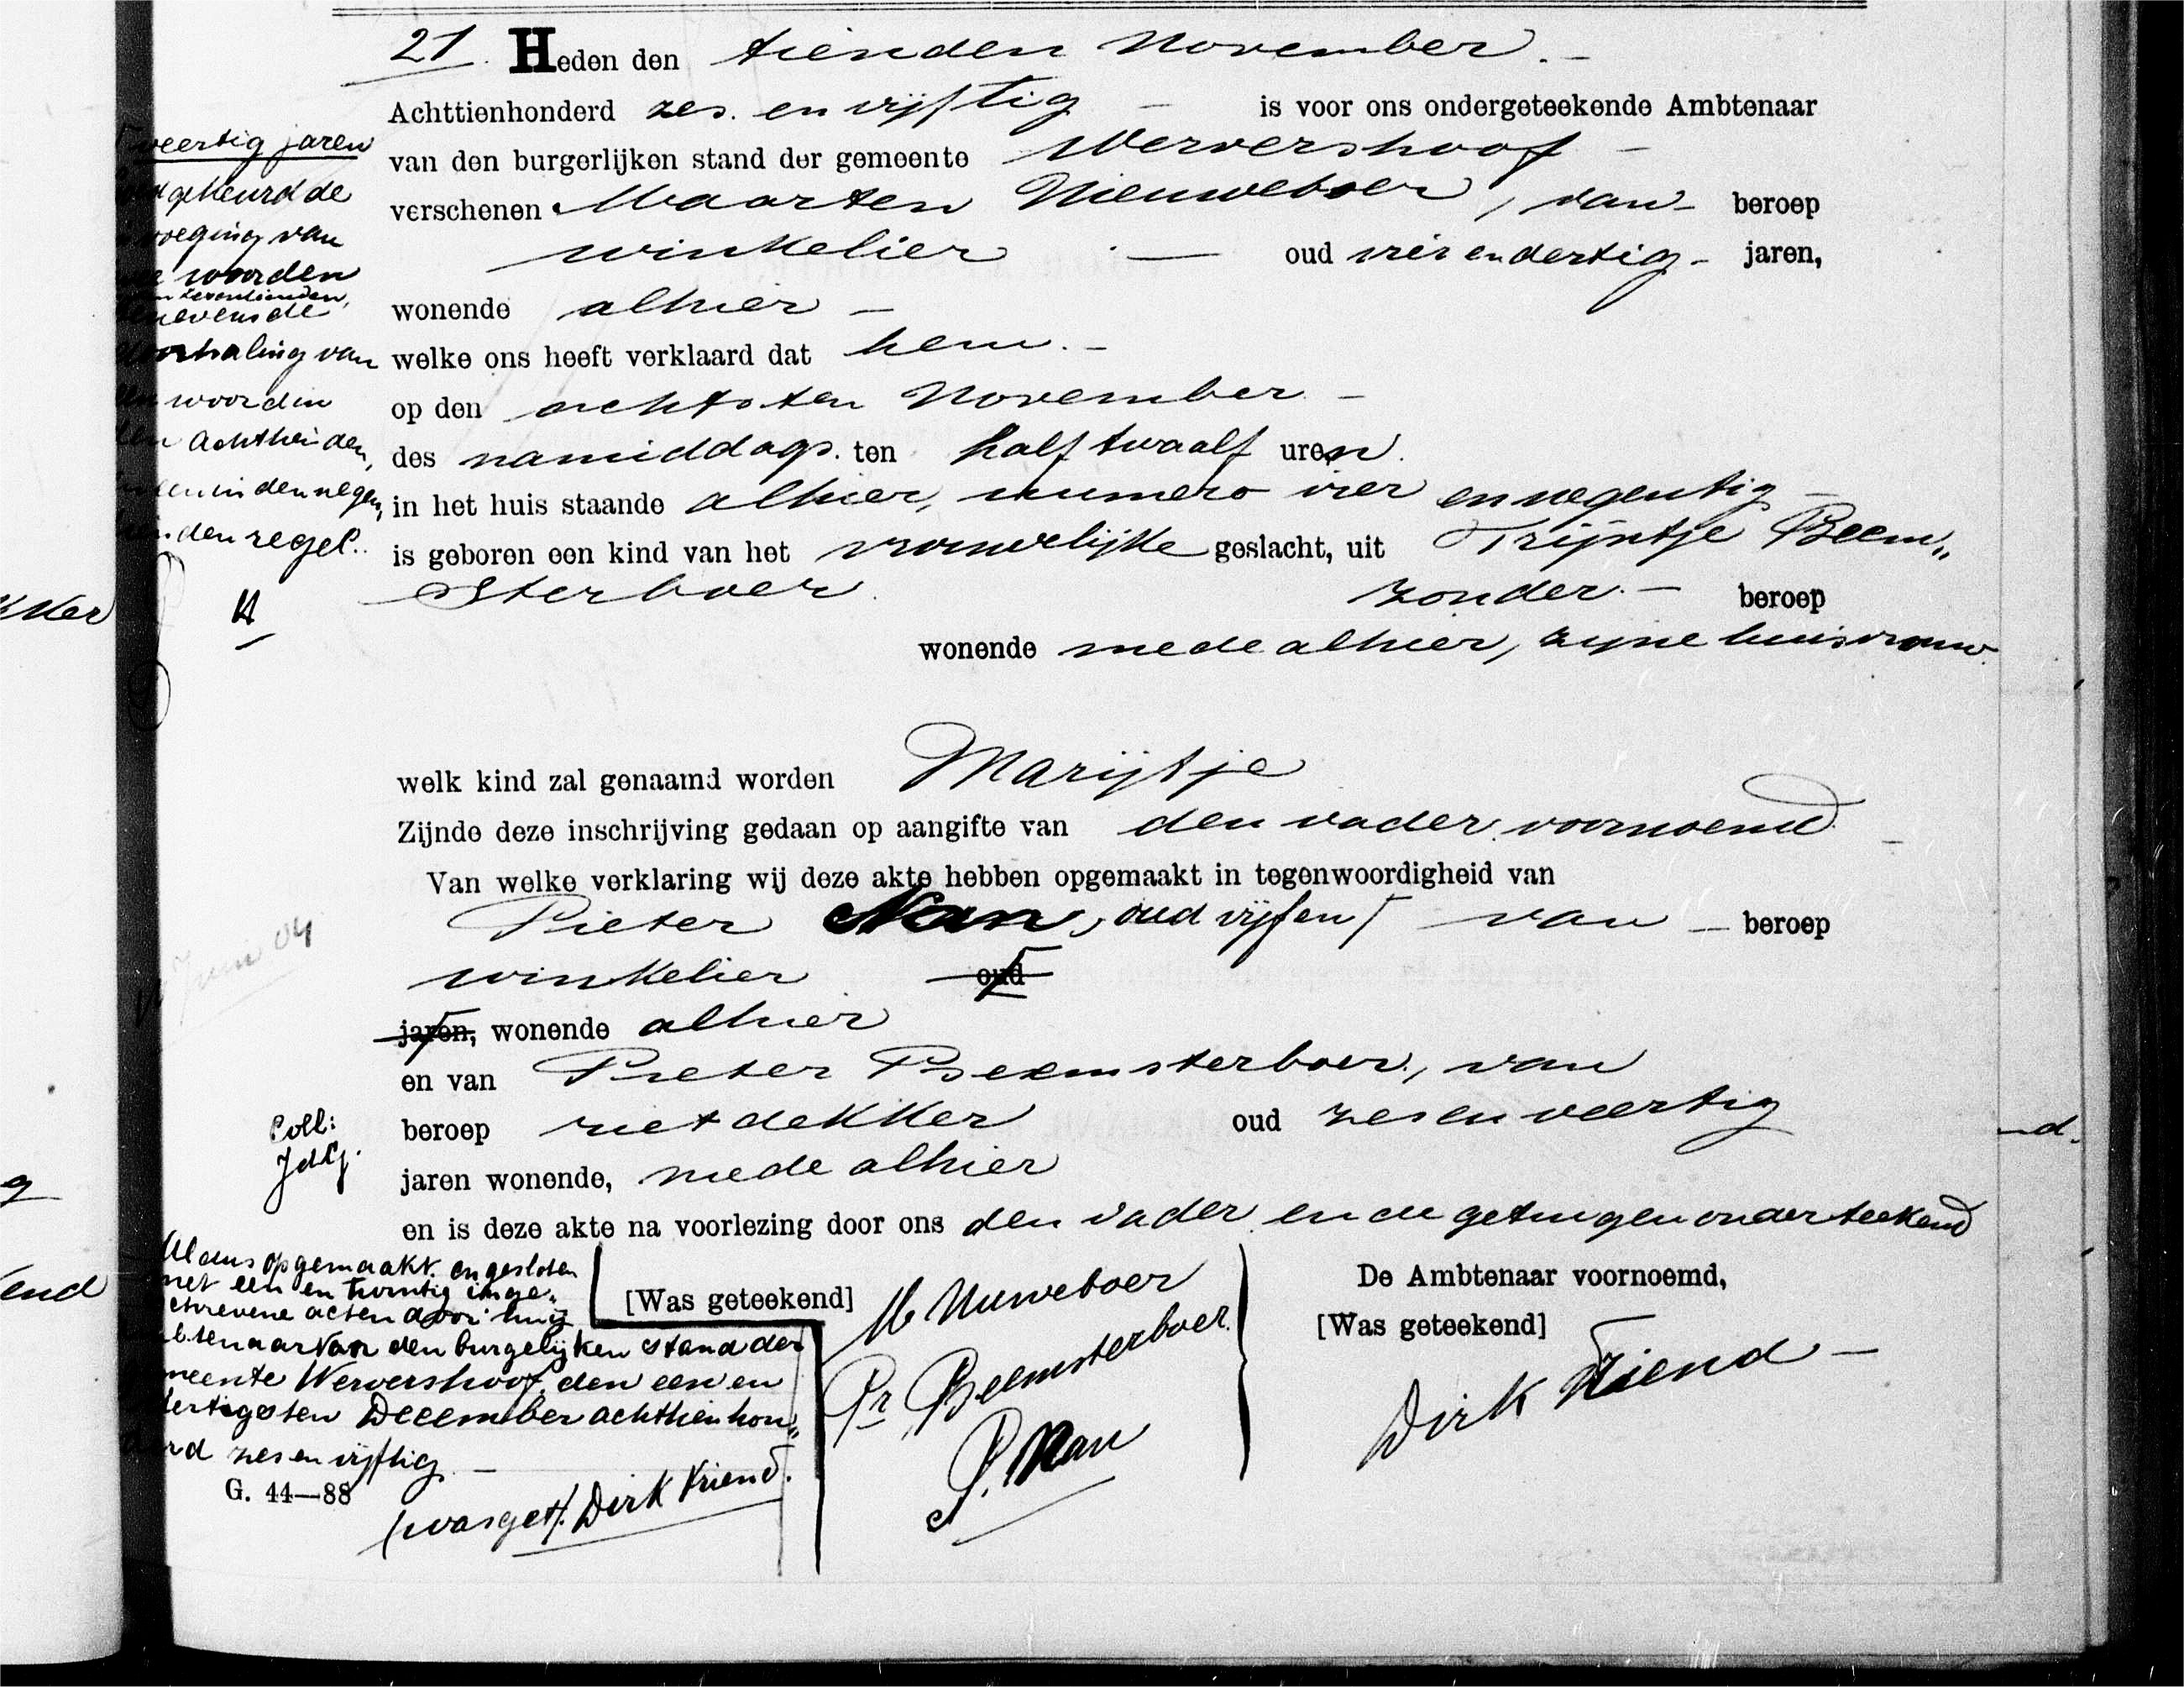 21. Heden den tienden November. -
Achttienhonderd zes. en vijftig - is voor ons ondergeteekende Ambtenaar
van den burgerlijken stand der gemeente Wervershoof -
verschenen Maarten Nieuweboer, van - beroep
winkelier - oud vier en dertig - jaren,
wonende alhier -
welke ons heeft verklaard dat hem. -
op den achtsten November -
des namiddags. ten half twaalf uren.
in het huis staande alhier, numero vier en negentig -
is geboren een kind van het vrouwelijke geslacht, uit Trijntje Beem„
sterboer zonder. - beroep
wonende mede alhier, zijne huisvrouw.
welk kind zal genaamd worden Marijtje
Zijnde deze inschrijving gedaan op aangifte van den vader voornoemd. -
Van welke verklaring wij deze akte hebben opgemaakt in tegenwoordigheid van
Pieter Nan, oud vijf en Γ van - beroep
winkelier oud
jaren, wonende alhier
en van Pieter Beemsterboer, van
beroep rietdekker oud zes en veertig
jaren wonende, mede alhier
en is deze akte na voorlezing door ons den vader en de getuigen onderteekend
[Was geteekend]
M Nuweboer
Pr Beemsterboer.
P. Nan
De Ambtenaar voornoemd,
[Was geteekend]
Dirk Vriend -
Γ veertig jaren
gekeurd de
voeging van
woorden
zeventienden,
benevens de
doorhaling van
woorden
achttienden,
in den negen„
den regel.
Juni 04
Coll:
Aldus opgemaakt en gesloten
met een en twintig inge„
schrevene acten door mij
Ambtenaar van den burgelijken stand der
meente Wervershoof, den een en
dertigsten December achttienhon„
zes en vijftig -
(was get). Dirk Vriend.
G. 44—88
kker
g
end